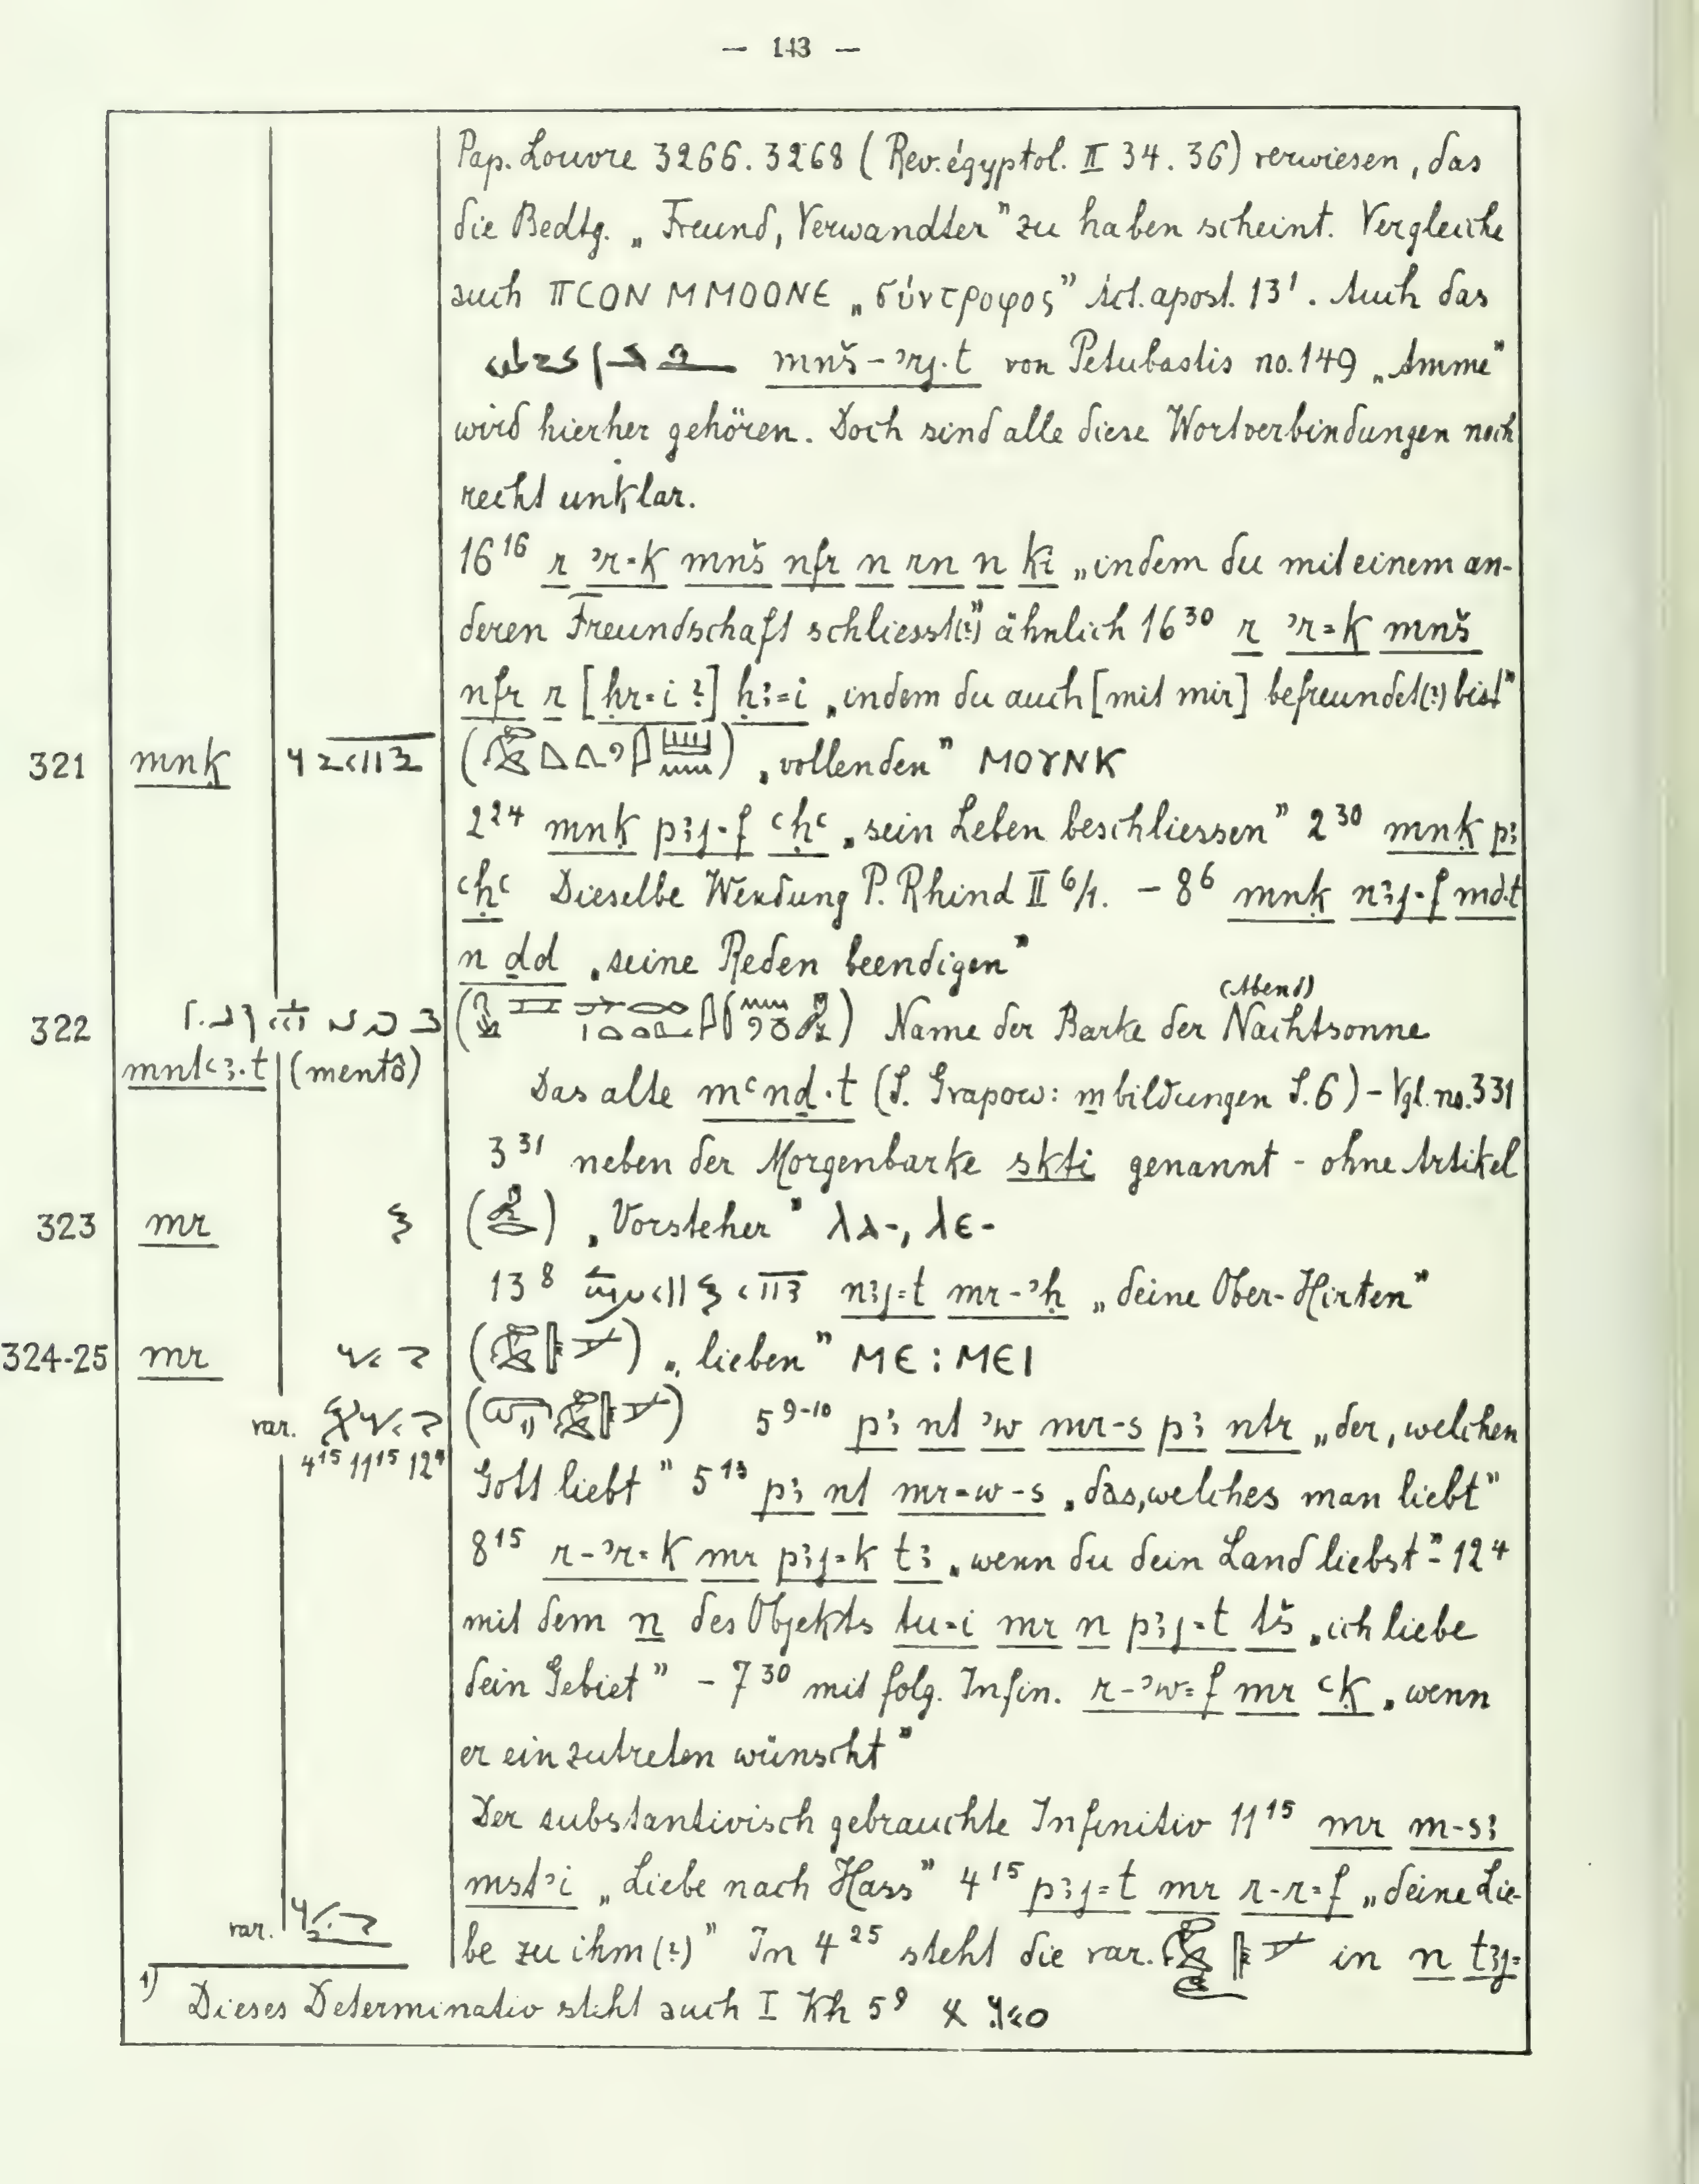 — 143 —
Pap. Louvre 3266. 3268 (Rev. égyptol. II 34. 36) verwiesen, das
die Bedtg. „Freund, Verwandter" zu haben scheint. Vergleiche
auch ⲠⲤⲞⲚ ⲘⲘⲞⲞⲚⲈ „σύντροφος" Act. apost. 13¹. Auch das
mnš-ʾrj.t von Petubastis no. 149 „Amme"
wird hierher gehören. Doch sind alle diese Wortverbindungen noch
recht unklar.
16¹⁶ r ʾr-k mnš nfr n rn n ki „indem du mit einem an-
deren Freundschaft schliesst(?)" ähnlich 16³⁰ r ʾr=k mnš
nfr r [ḥr=i ?] ḥꜣ=i „indem du auch [mit mir] befreundet(?) bist"
321 mnḳ ( ) „vollenden" ⲘⲞⲨⲚⲔ
2²⁴ mnḳ pꜣj-f ꜥḥꜥ „sein Leben beschliessen" 2³⁰ mnḳ pꜣ
ꜥḥꜥ Dieselbe Wendung P. Rhind II 6/1. – 8⁶ mnḳ nꜣj-f md.t
n ḏd „seine Reden beendigen"
322 ( ) Name der Barke der Nachtsonne (Abend)
mntꜥꜣ.t (mentô) Das alte mꜥnḏ.t (S. Grapow: mbildungen S. 6) – Vgl. no. 331
3³¹ neben der Morgenbarke skti genannt - ohne Artikel
323 mr ( ) „Vorsteher" ⲖⲀ-, ⲖⲈ-
13⁸ nꜣj=t mr-ʾḥ „deine Ober-Hirten"
324-25 mr ( ) „lieben" ⲘⲈ : ⲘⲈⲒ
var. ( ) 5⁹⁻¹⁰ pꜣ nt ʾw mr-s pꜣ ntr „der, welchen
4¹⁵ 11¹⁵ 12⁴ Gott liebt" 5¹³ pꜣ nt mr=w-s „das, welches man liebt"
8¹⁵ r-ʾr=k mr pꜣj=k tꜣ „wenn du dein Land liebst" - 12⁴
mit dem n des Objekts tu=i mr n pꜣj=t tš „ich liebe
dein Gebiet" – 7³⁰ mit folg. Infin. r-ʾw=f mr ꜥḳ „wenn
er einzutreten wünscht"
Der substantivisch gebrauchte Infinitiv 11¹⁵ mr m-sꜣ
mstʾi „Liebe nach Hass" 4¹⁵ pꜣj=t mr r-r=f „deine Lie-
var. be zu ihm(?)" In 4²⁵ steht die var. in n tꜣj=
1) Dieses Determinativ steht auch I Kh 5⁹